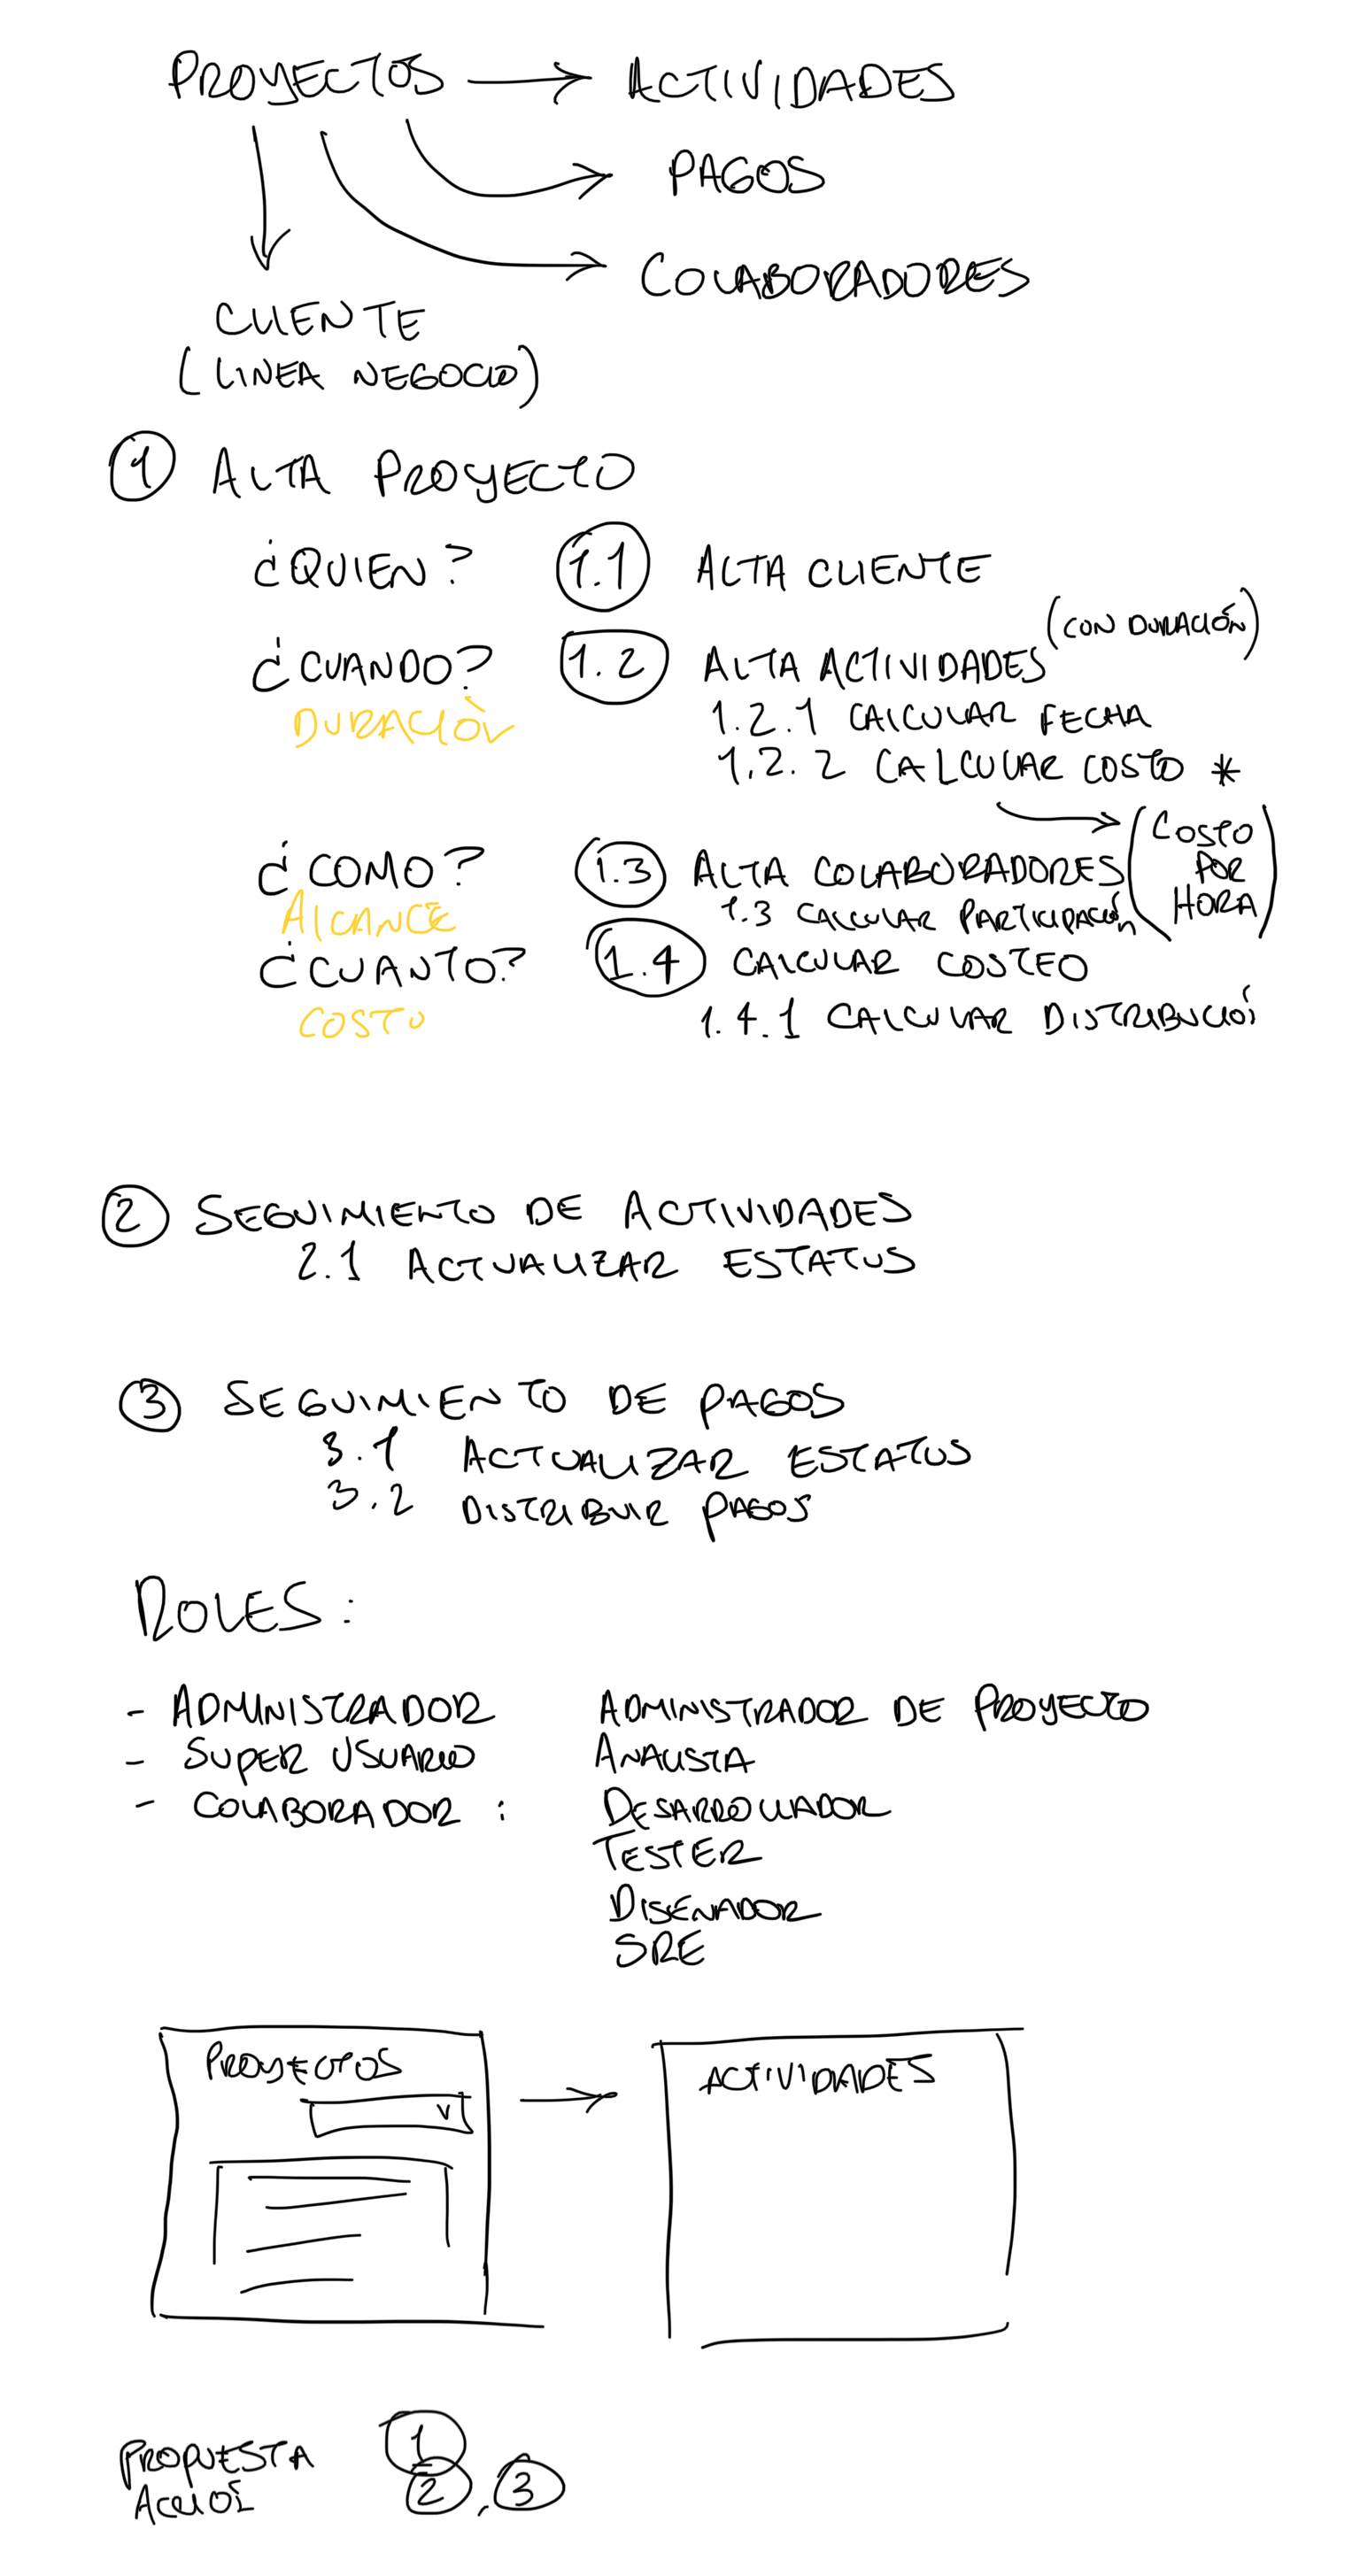 PROYECTOS → ACTIVIDADES
PAGOS
COLABORADORES
CLIENTE
(LINEA NEGOCIO)
1 ALTA PROYECTO
¿QUIEN? 1.1 ALTA CLIENTE
(CON DURACIÓN)
¿CUANDO? 1.2 ALTA ACTIVIDADES
DURACIÓN 1.2.1 CALCULAR FECHA
1.2.2 CALCULAR COSTO *
(COSTO POR HORA)
¿COMO? 1.3 ALTA COLABORADORES
ALCANCE 1.3 CALCULAR PARTICIPACIÓN
¿CUANTO? 1.4 CALCULAR COSTEO
COSTO 1.4.1 CALCULAR DISTRIBUCIÓ
2 SEGUIMIENTO DE ACTIVIDADES
2.1 ACTUALIZAR ESTATUS
3 SEGUIMIENTO DE PAGOS
3.1 ACTUALIZAR ESTATUS
3.2 DISTRIBUIR PAGOS
ROLES:
- ADMINISTRADOR ADMINISTRADOR DE PROYECTO
- SUPER USUARIO ANALISTA
- COLABORADOR: DESARROLLADOR
TESTER
DISEÑADOR
SRE
PROYECTOS → ACTIVIDADES
PROPUESTA 1
ACCIÓ 2, 3